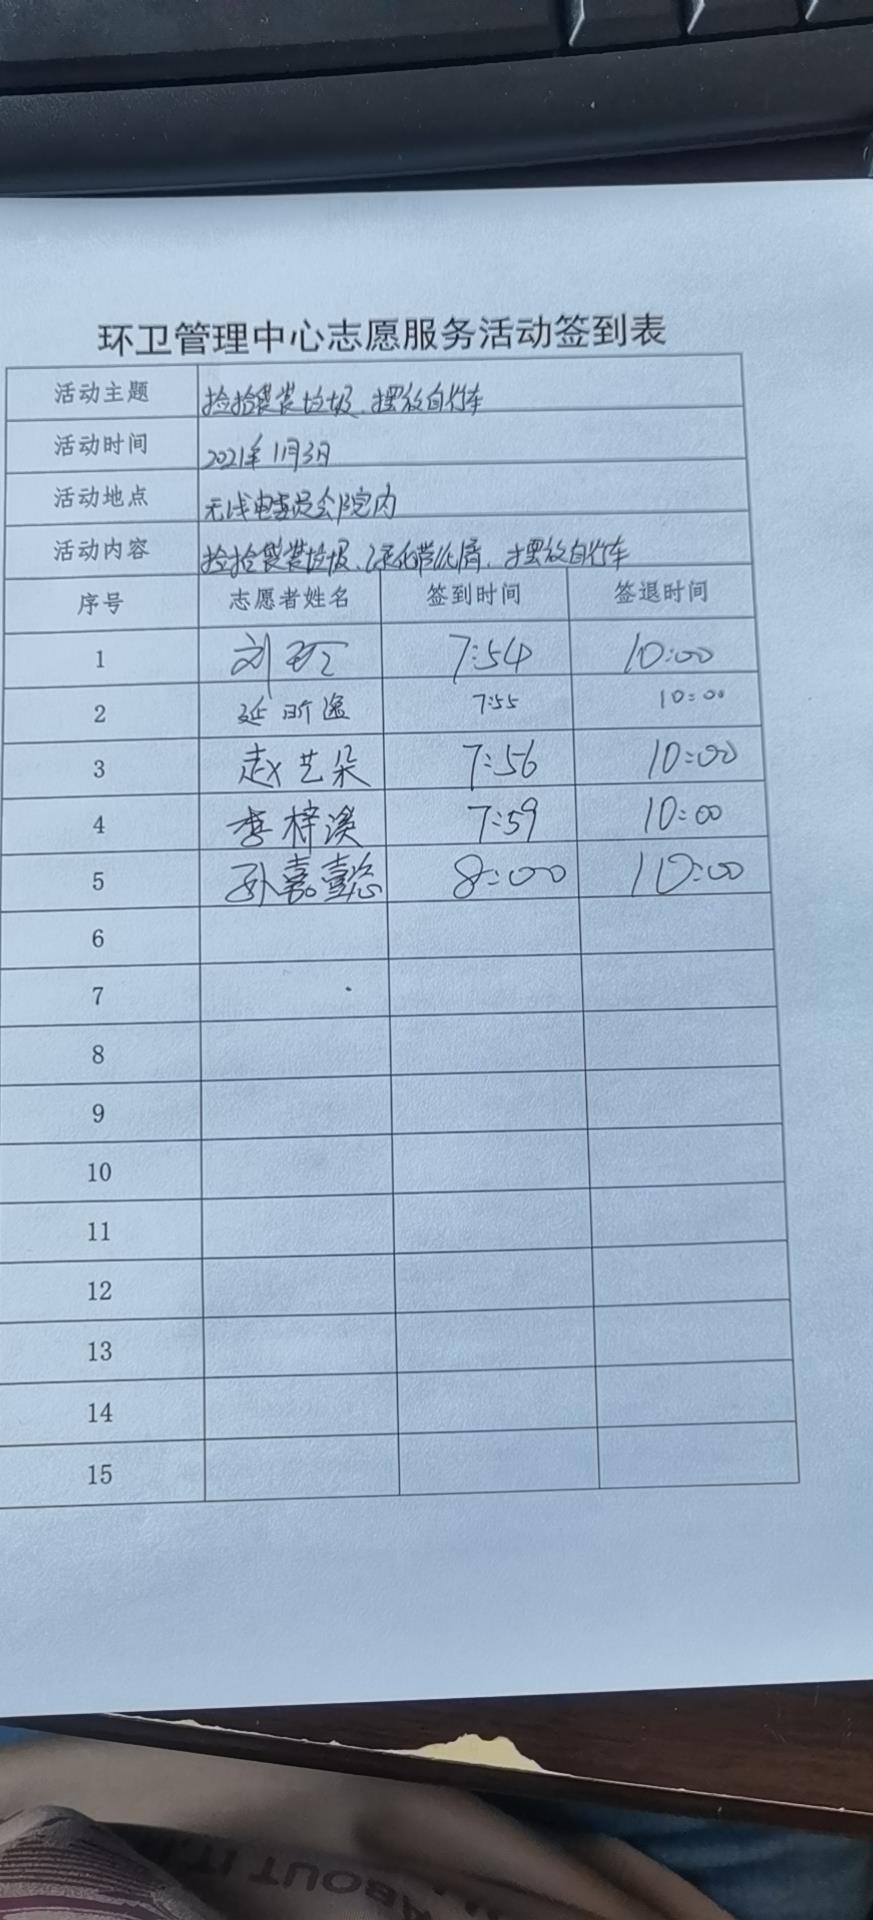 环卫管理中心志愿服务活动签到表
活动主题 捡拾袋装垃圾、摆放自行车
活动时间 2021年11月3日
活动地点 无线电委员会院内
活动内容 捡拾袋装垃圾、绿化带、摆放自行车
序号 志愿者姓名 签到时间 签退时间
1 刘 7:54 10:00
2 延 7:55 10:00
3 赵艺朵 7:56 10:00
4 李梓溪 7:59 10:00
5 孙嘉懿 8:00 10:00
6
7
8
9
10
11
12
13
14
15
ABOUT IT